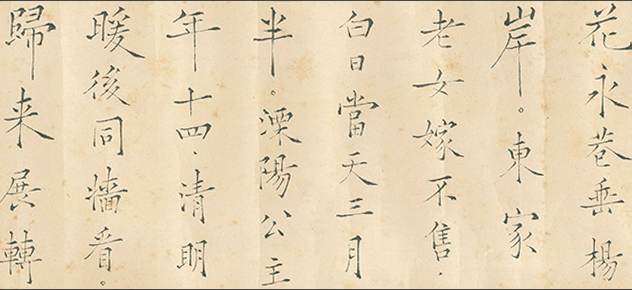 花永巷垂楊
岸。東家
老女嫁不售、
白日當天三月
半。溧陽公主
年十四、清明
暖後同牆看。
歸来展轉